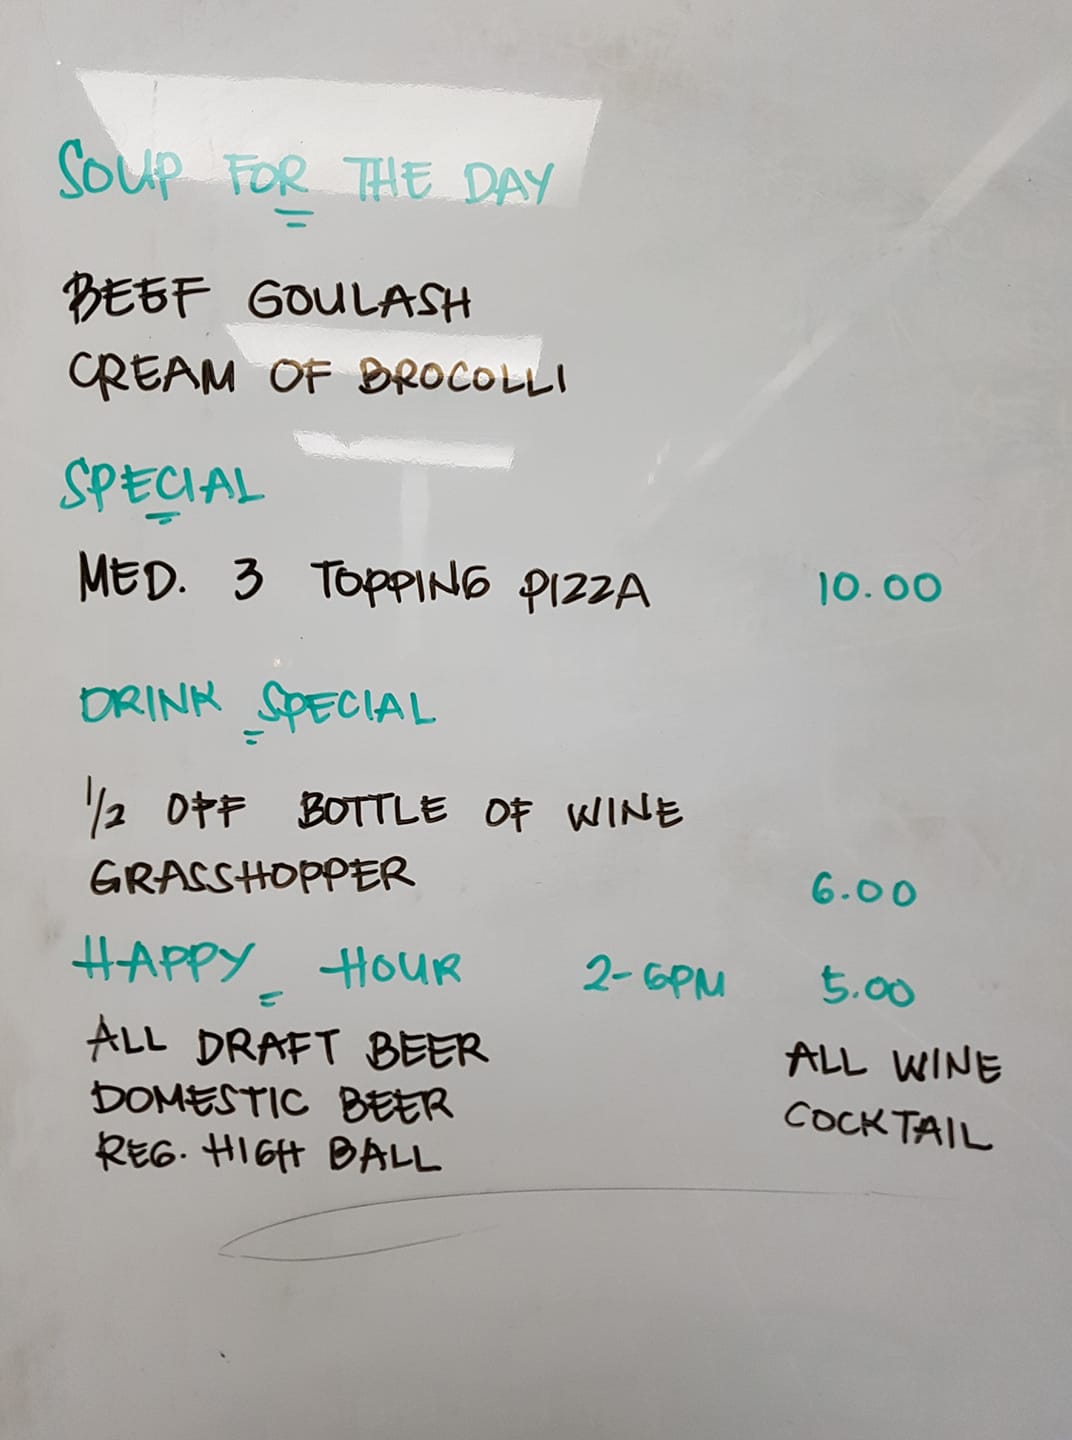 SOUP FOR THE DAY
BEEF GOULASH
CREAM OF BROCOLLI
SPECIAL
MED. 3 TOPPING PIZZA 10.00
DRINK SPECIAL
1/2 OFF BOTTLE OF WINE
GRASSHOPPER 6.00
HAPPY HOUR 2-6PM 5.00
ALL DRAFT BEER ALL WINE
DOMESTIC BEER COCKTAIL
REG. HIGH BALL